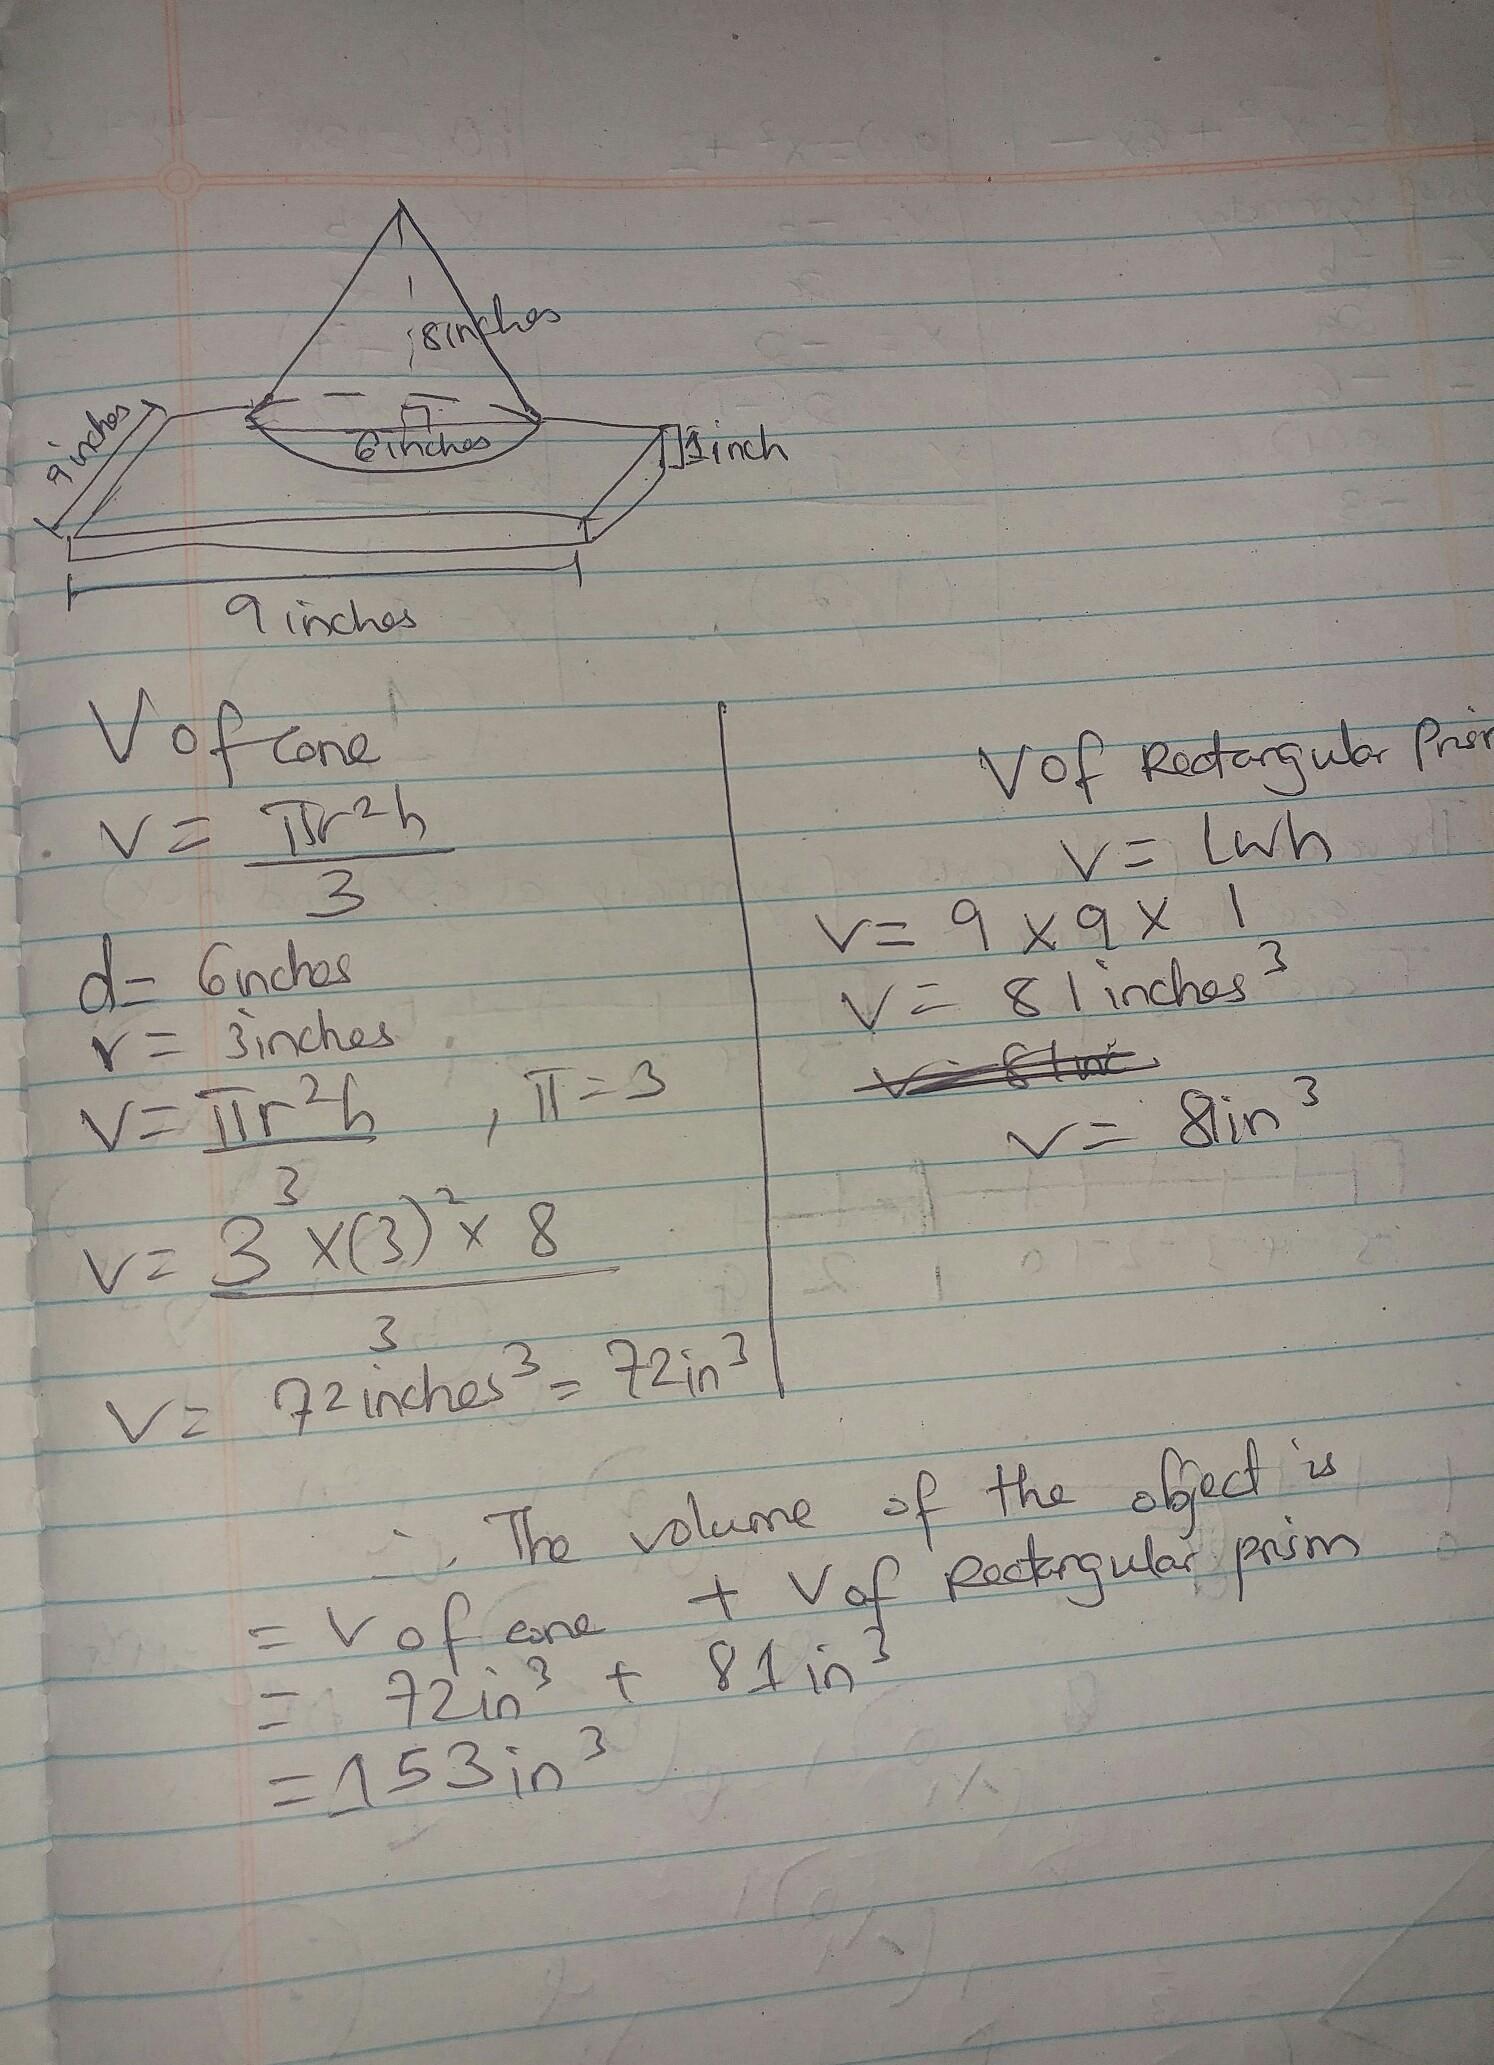 8inches
9inches
6inches
1inch
9 inches
V of cone
V = πr²h
3
d = 6inches
r = 3inches
V = πr²h , π = 3
3
V = 3 × (3)² × 8
3
V = 72 inches³ = 72in³
V of Rectangular
V = lwh
V = 9 × 9 × 1
V = 81 inches³
V = 81in³
∴ The volume of the object is
= V of cone + V of Rectangular prism
= 72in³ + 81in³
= 153in³